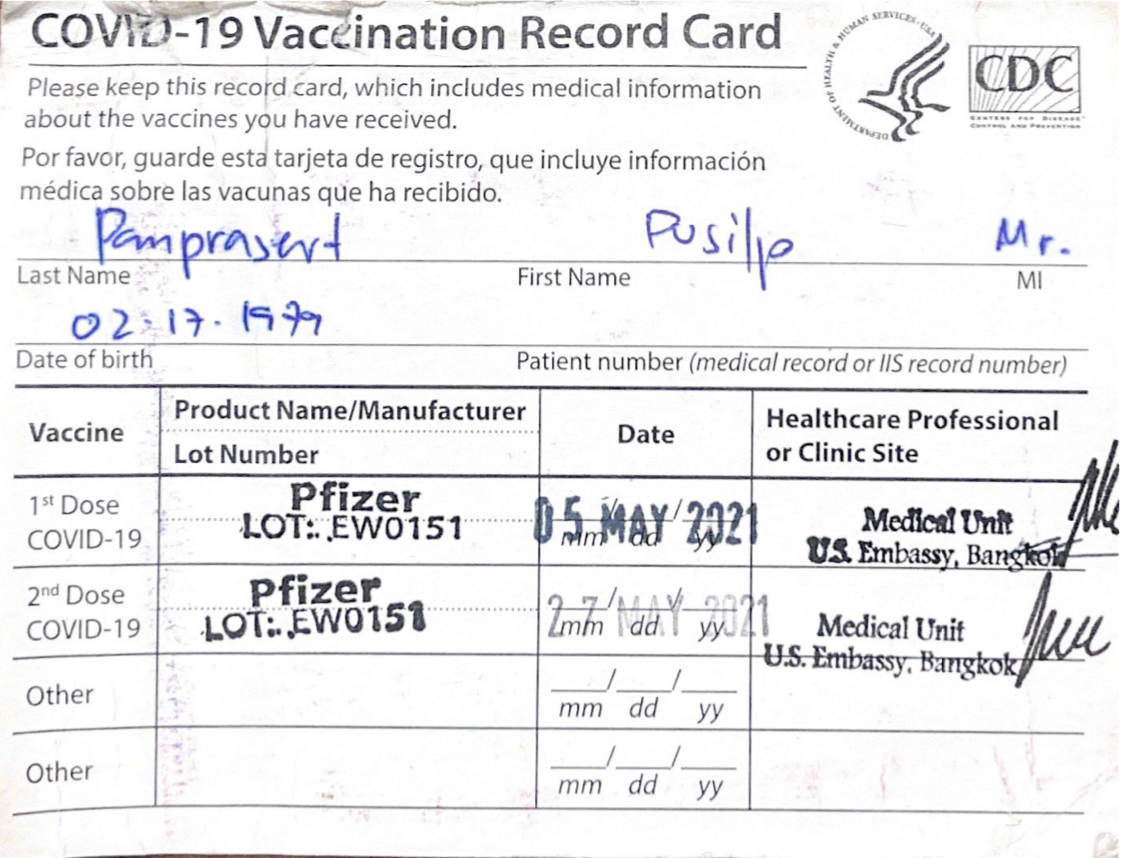 COVID-19 Vaccination Record Card
DEPARTMENT OF HEALTH & HUMAN SERVICES · USA
CDC
CENTERS FOR DISEASE
CONTROL AND PREVENTION
Please keep this record card, which includes medical information
about the vaccines you have received.
Por favor, guarde esta tarjeta de registro, que incluye información
médica sobre las vacunas que ha recibido.
Pamprasert Pusilp Mr.
Last Name First Name MI
02.17.1979
Date of birth Patient number (medical record or IIS record number)
Vaccine Product Name/Manufacturer Date Healthcare Professional
Lot Number or Clinic Site
1st Dose Pfizer 05 MAY 2021 Medical Unit
COVID-19 LOT:. EW0151 mm / dd / yy U.S. Embassy, Bangkok
2nd Dose Pfizer 27 MAY 2021 Medical Unit
COVID-19 LOT:. EW0151 mm / dd / yy U.S. Embassy, Bangkok
Other ___/___/___
mm dd yy
Other ___/___/___
mm dd yy